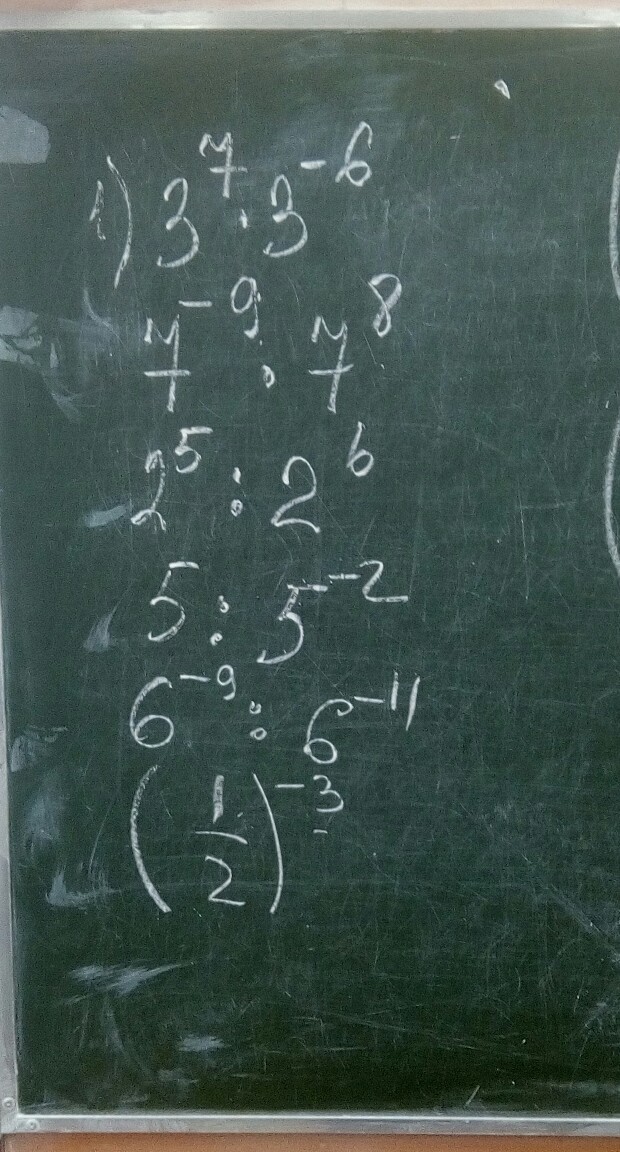 1) 3⁷ · 3⁻⁶
7⁻⁹ · 7⁸
2⁵ : 2⁶
5 : 5⁻²
6⁻⁹ : 6⁻¹¹
(1/2)⁻³